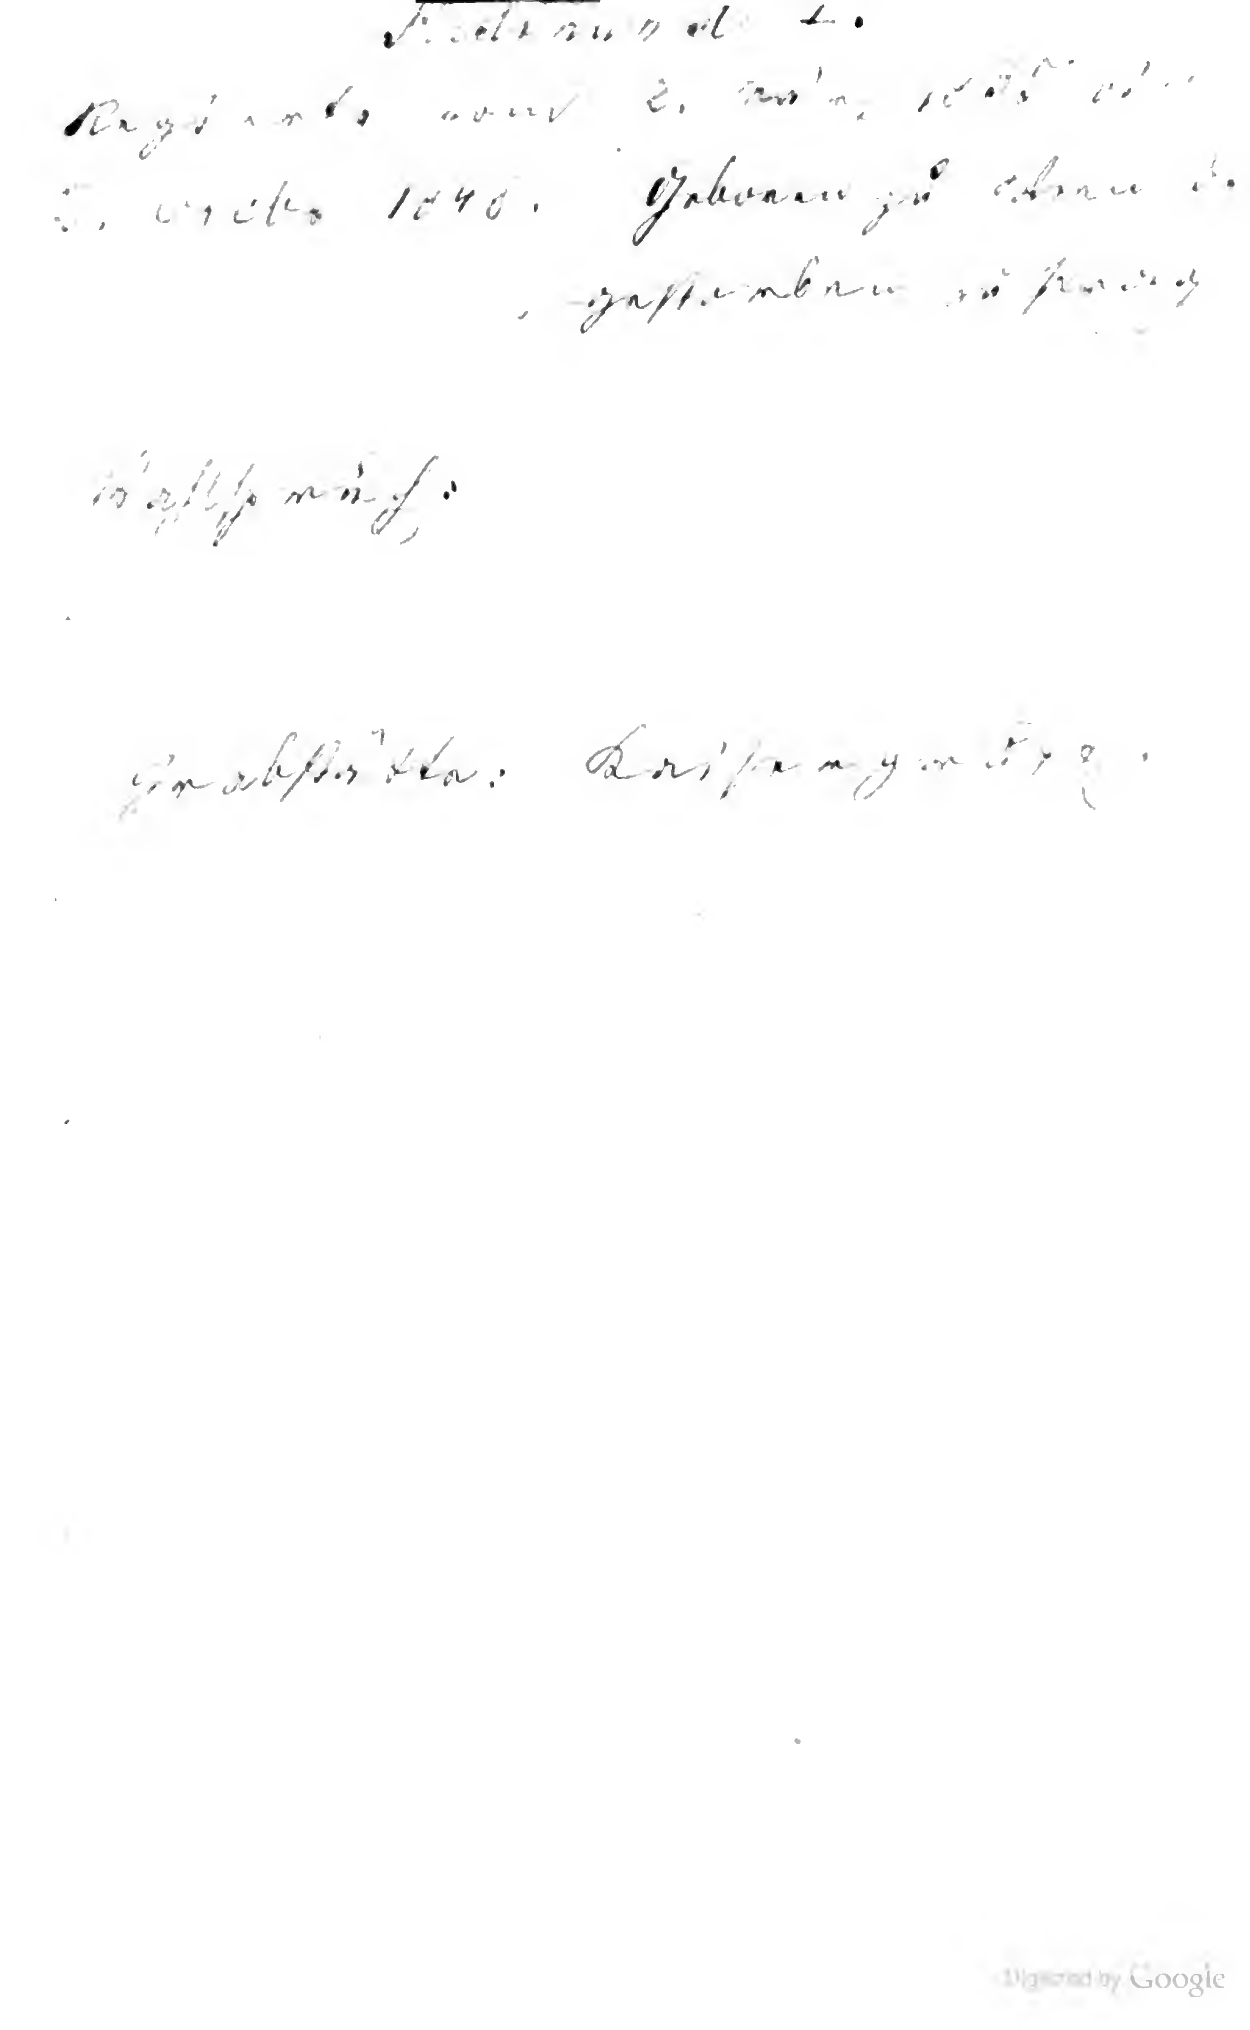 Ferdinand I.
Regierte vom 2. März 1835 bis
2. Decbr. 1848. Geboren zu Wien d.
, gestorben zu Prag
Wahlspruch:
Grabstätte: Kaisergruft.
Digitized by Google